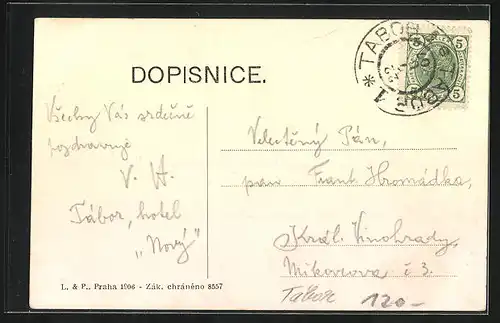 DOPISNICE.
* TABOR
1
5 5
Všechny Vás srdečně
pozdravuje
V. H.
Tábor, hotel
„Nový"
L. & P., Praha 1906 - Zák. chráněno 8557
Velectěný Pán,
pan Frant Hromádka,
Král. Vinohrady
Mikovcova č 3.
Tabor 120-